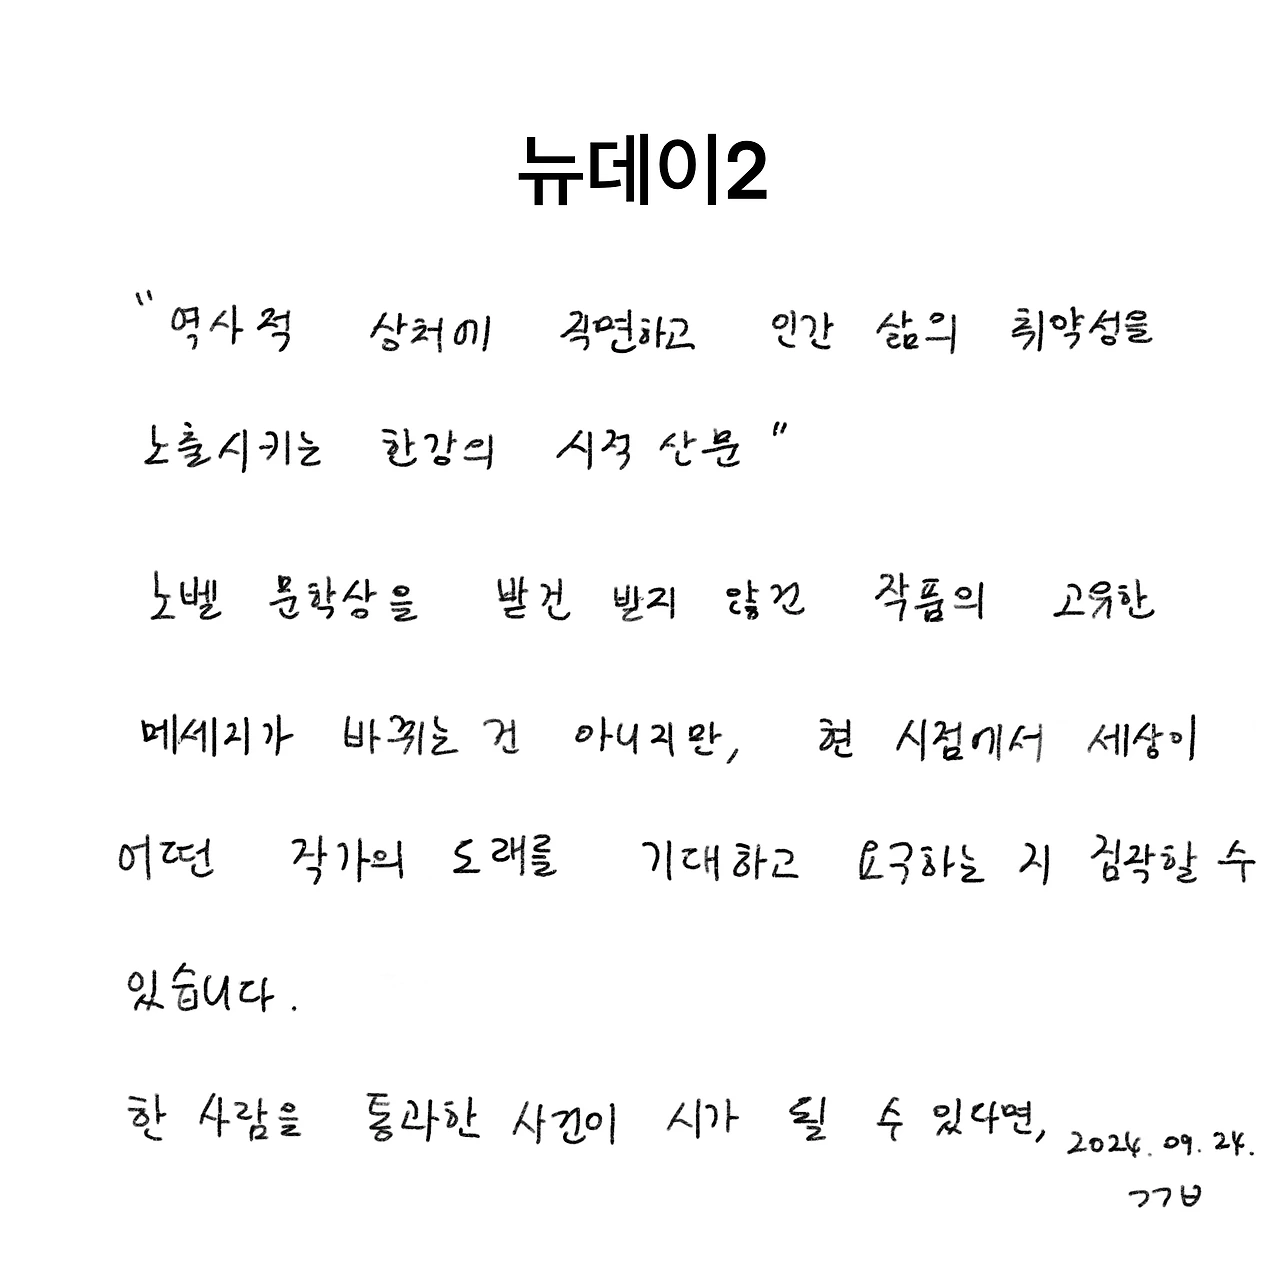 뉴데이2
"역사적 상처에 직면하고 인간 삶의 취약성을
노출시키는 한강의 시적 산문"
노벨 문학상을 받건 받지 않건 작품의 고유한
메세지가 바뀌는 건 아니지만, 현 시점에서 세상이
어떤 작가의 노래를 기대하고 요구하는 지 짐작할 수
있습니다.
한 사람을 통과한 사건이 시가 될 수 있다면,
2024. 09. 24.
ㄱㄱㅂ